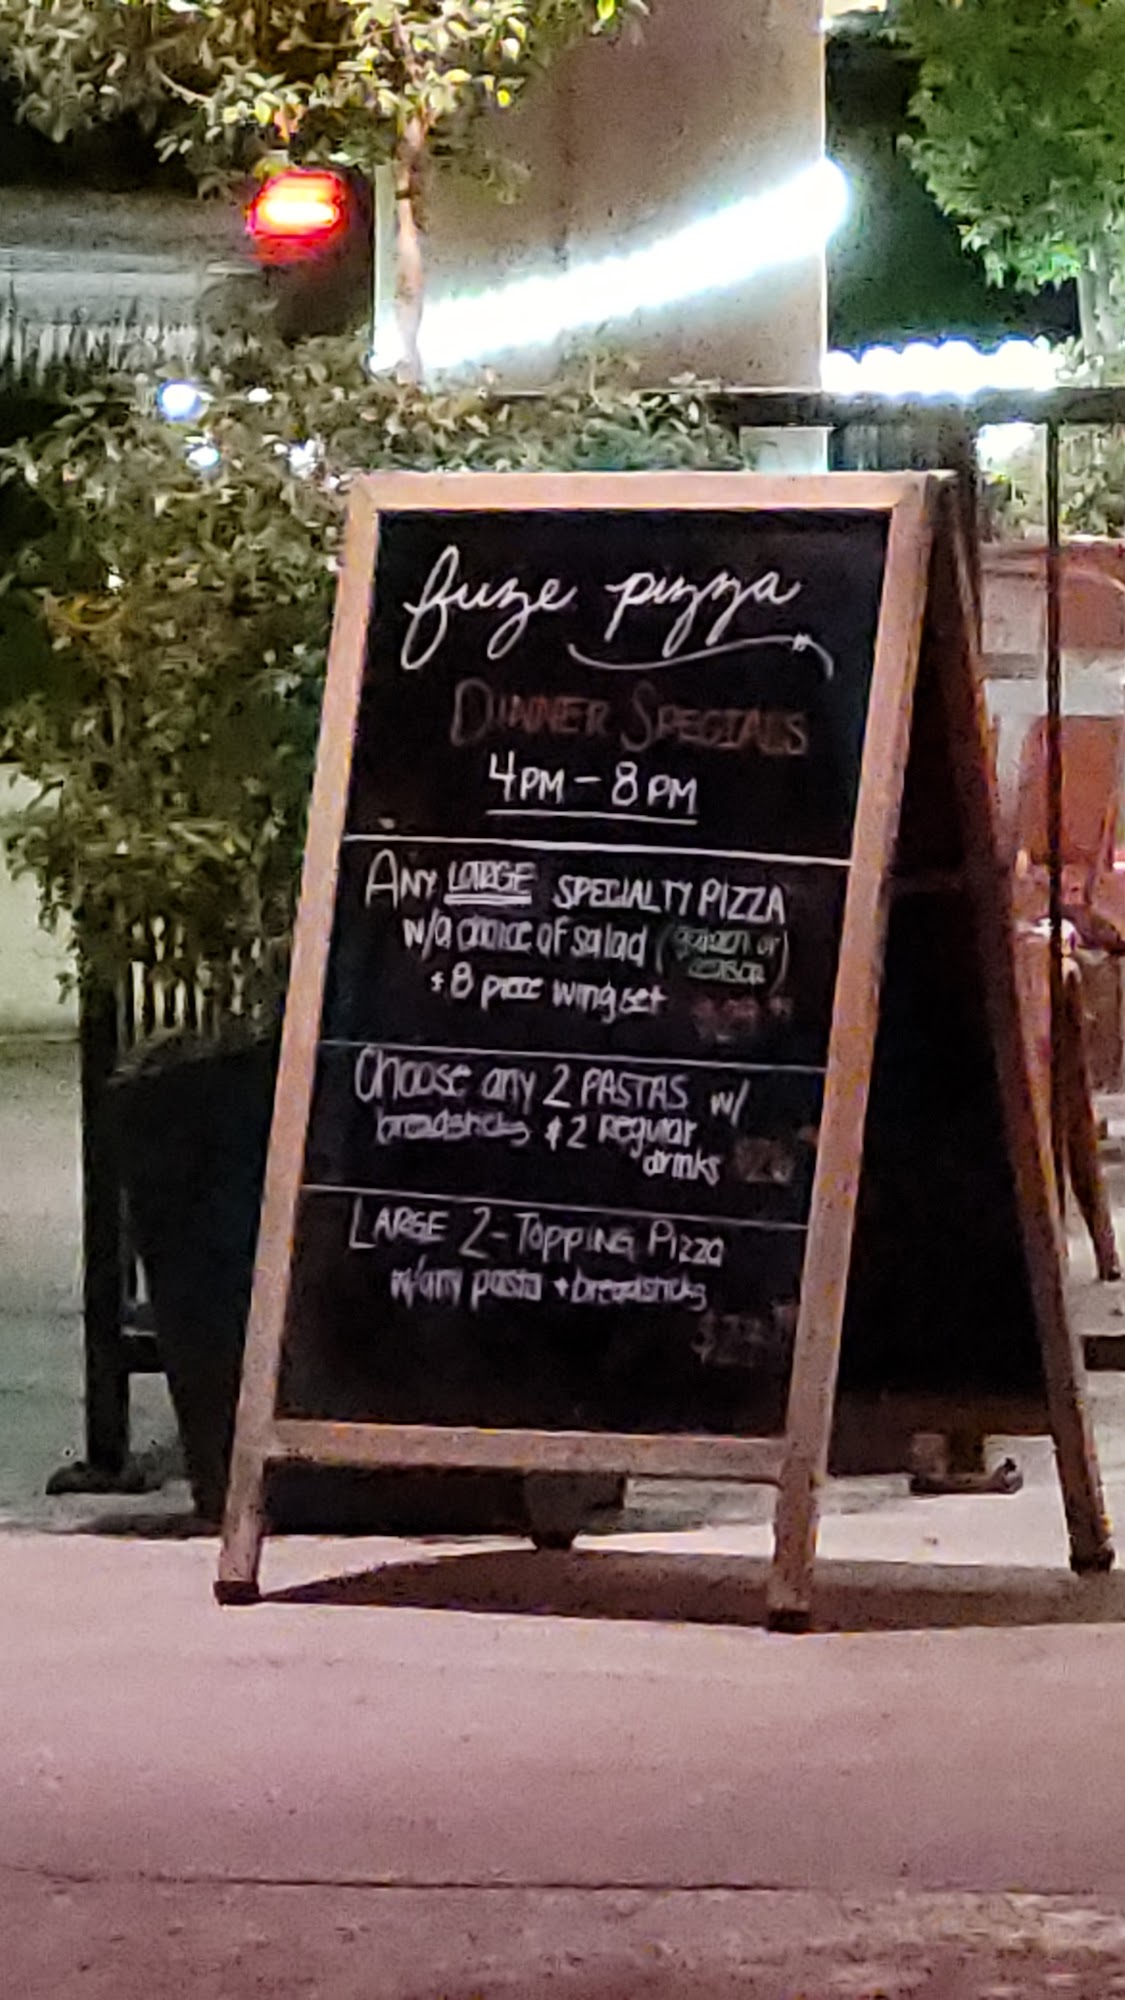 fuze pizza
DINNER SPECIALS
4PM - 8PM
ANY LARGE SPECIALTY PIZZA
w/a choice of salad (garden or
caesar)
+ 8 piece wing set
Choose any 2 PASTAS w/
breadsticks + 2 regular
drinks
LARGE 2-TOPPING PIZZA
w/any pasta + breadsticks